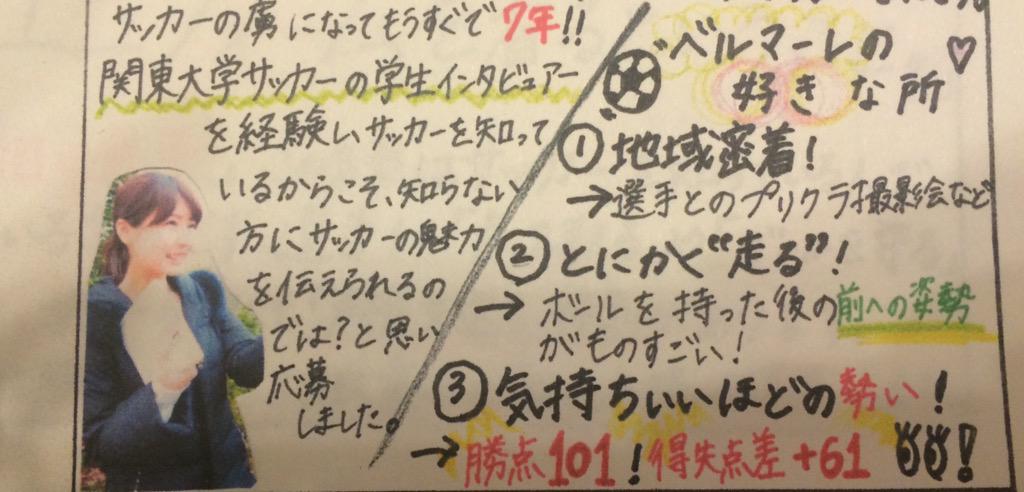 サッカーの虜になってもうすぐで7年!!
関東大学サッカーの学生インタビュアー
を経験し、サッカーを知って
いるからこそ、知らない
方にサッカーの魅力
を伝えられるの
では?と思い
応募
しました。
ベルマーレの
好きな所♡
①地域密着!
→選手とのプリクラ撮影会など
②とにかく“走る”!
→ボールを持った後の前への姿勢
がものすごい!
③気持ちいいほどの勢い!
→勝点101!得失点差+61!